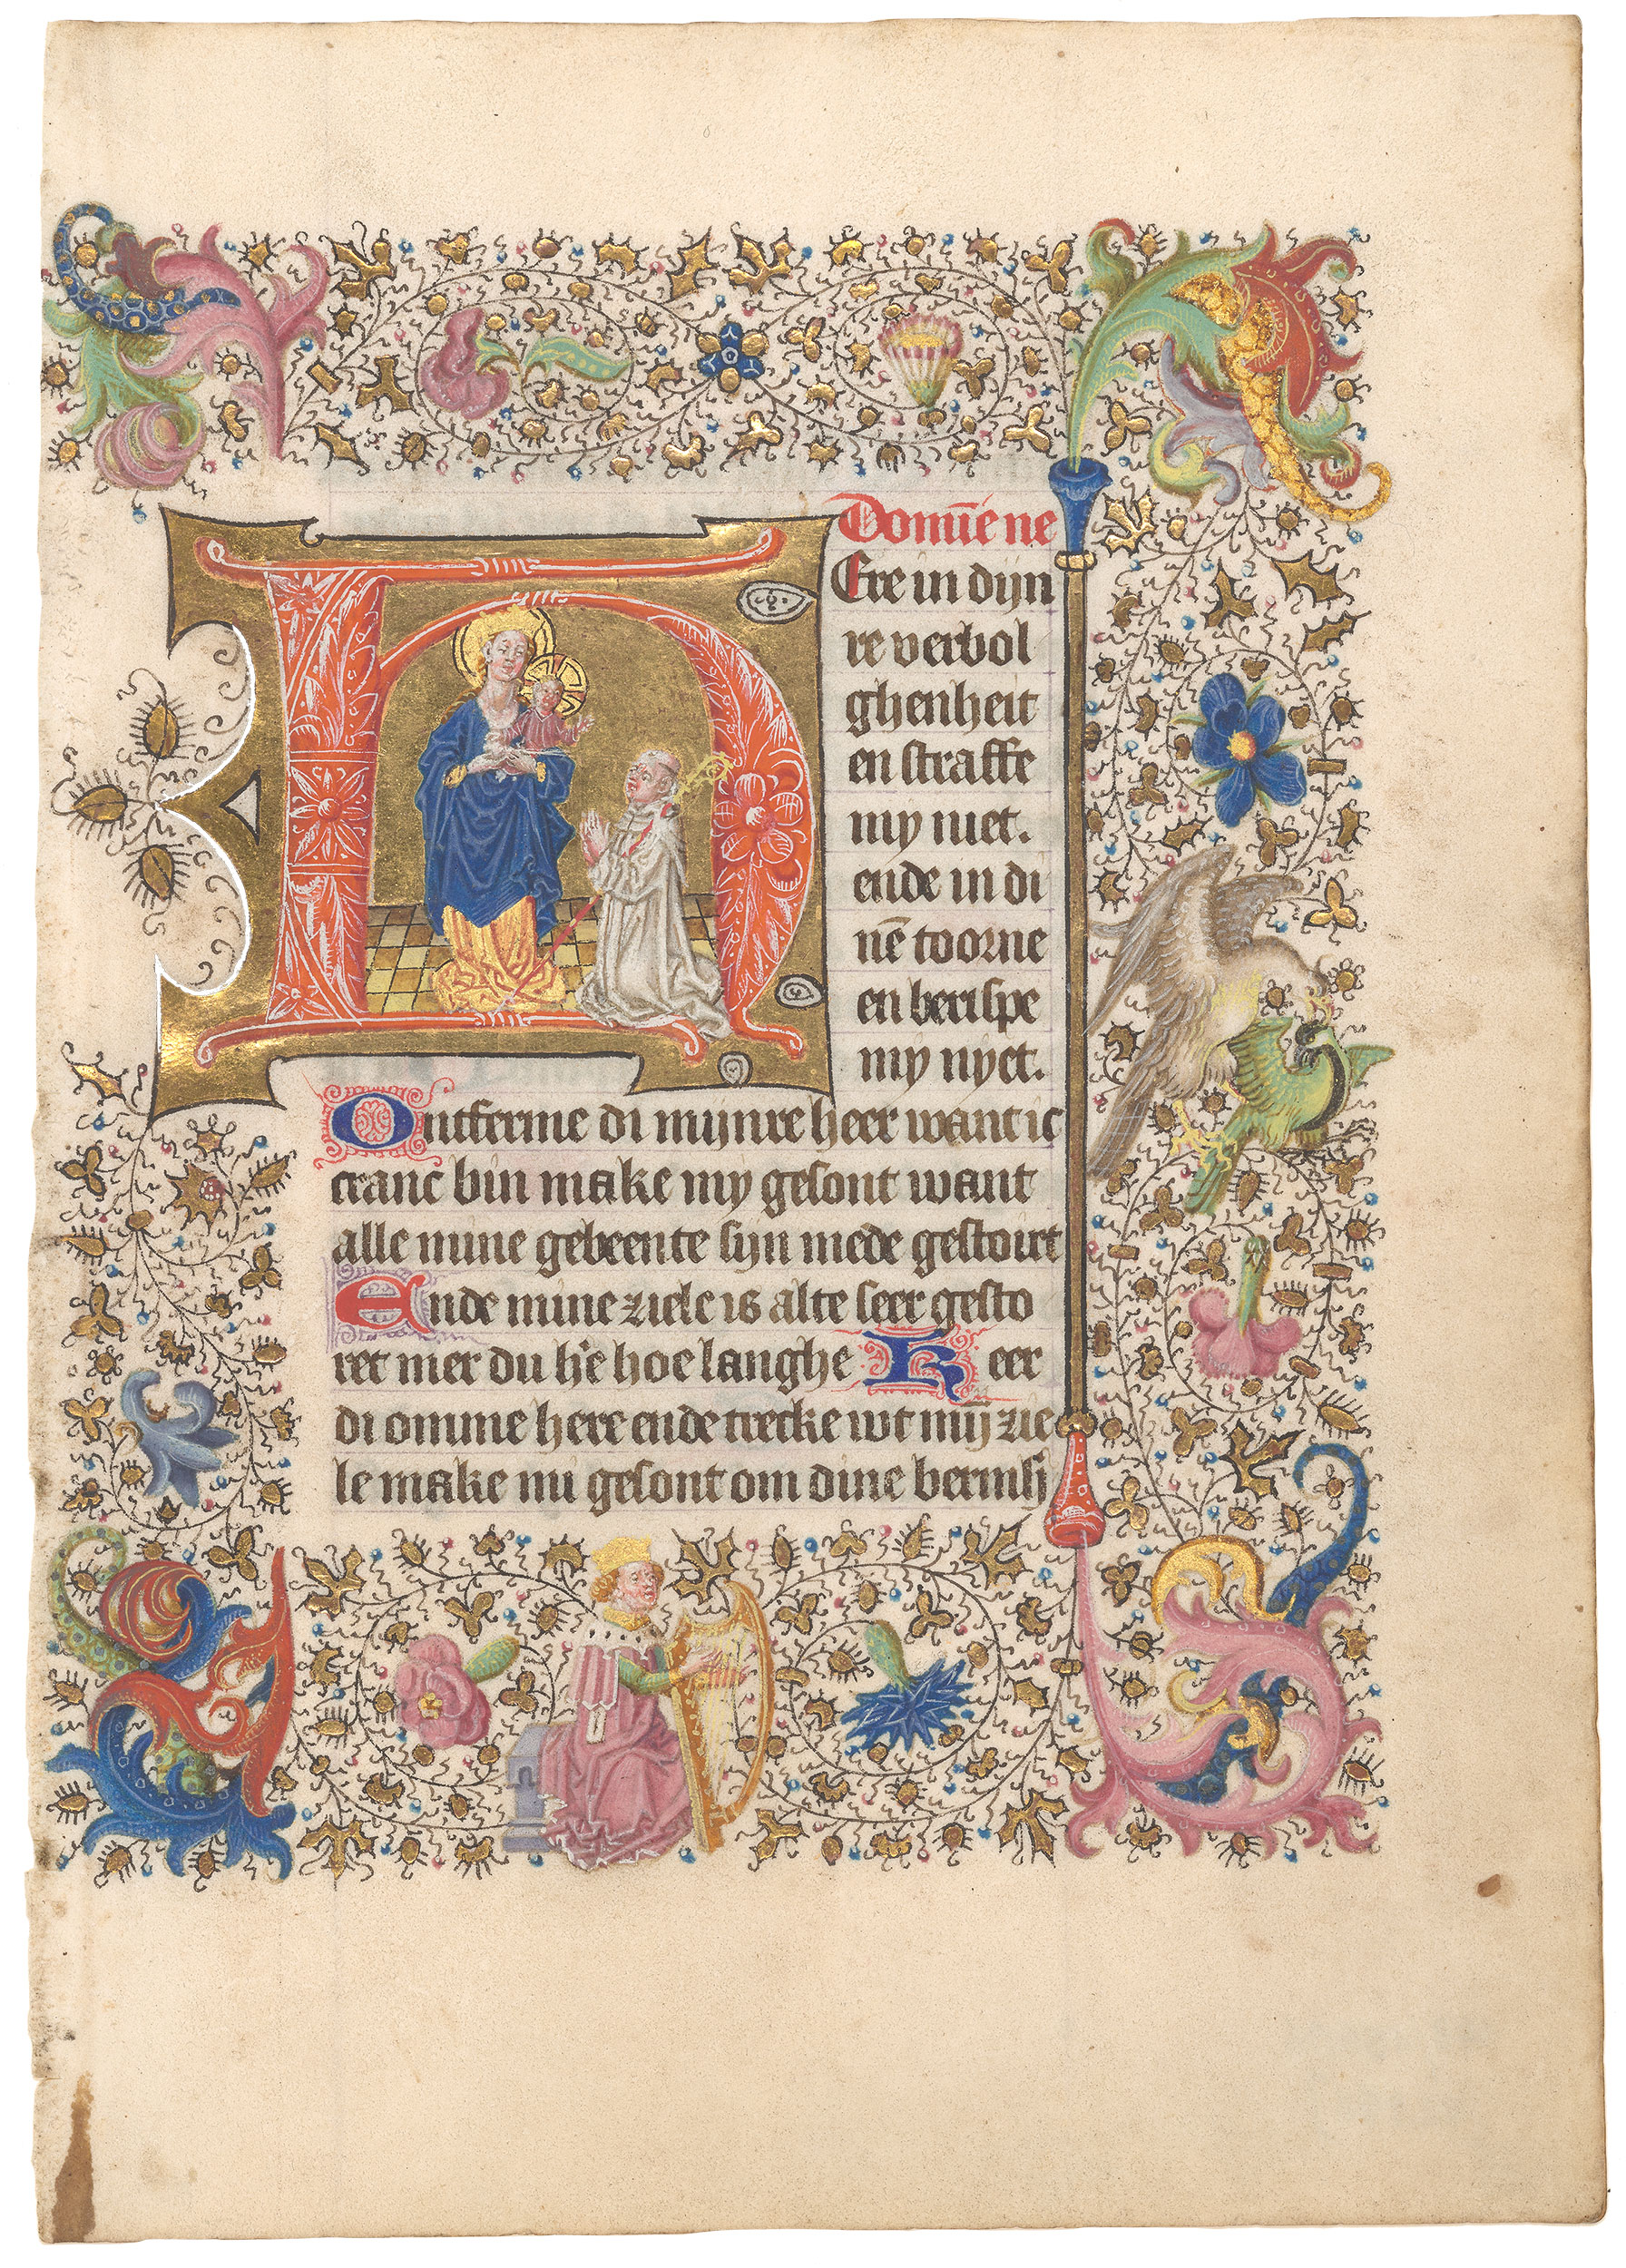 Domīe ne
Ere in dijn
re verbol
ghenheit
en straffe
my niet.
ende in di
nē toorne
en berispe
my nyet.
Ontferme di mijnre heer want ic
cranc bin make my gesont want
alle mine gebeente sijn mede gestoirt
Ende mine ziele is alte seer gesto
ret mer du h̄e hoe langhe Keer
di omme here ende trecke wt mij̄ zie
le make mi gesont om dine bermh̄